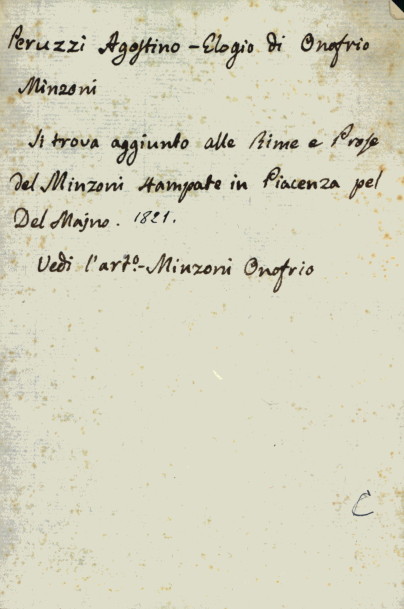 Peruzzi Agostino - Elogio di Onofrio
Minzoni
Si trova aggiunto alle Rime e Prose
del Minzoni stampate in Piacenza pel
Del Majno. 1821.
Vedi l'art.º - Minzoni Onofrio
C